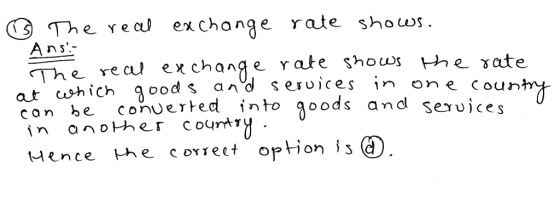 ⑬ The real exchange rate shows.
Ans:-
The real exchange rate shows the rate
at which goods and services in one country
can be converted into goods and services
in another country.
Hence the correct option is ⓓ.